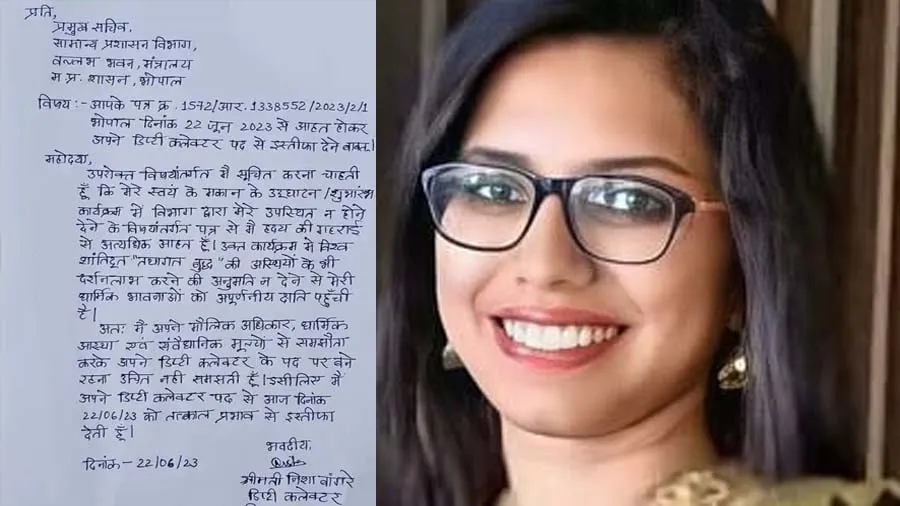 प्रति,
प्रमुख सचिव,
सामान्य प्रशासन विभाग,
वल्लभ भवन, मंत्रालय
म.प्र. शासन, भोपाल
विषय :- आपके पत्र क्र. 1572/आर. 1338552/2023/2/1
भोपाल दिनांक 22 जून 2023 से आहत होकर
अपने डिप्टी कलेक्टर पद से इस्तीफा देने बाबत।
महोदया,
उपरोक्त विषयांतर्गत मैं सूचित करना चाहती
हूँ कि मेरे स्वयं के मकान के उद्घाटन/शुभारंभ
कार्यक्रम में विभाग द्वारा मेरे उपस्थित न होने
देने के विषयांतर्गत पत्र से मैं हृदय की गहराई
से अत्यधिक आहत हूँ। उक्त कार्यक्रम में विश्व
शांतिदूत "तथागत बुद्ध" की अस्थियों के भी
दर्शनलाभ करने की अनुमति न देने से मेरी
धार्मिक भावनाओं को अपूर्णनीय क्षति पहुँची
है।
अतः मैं अपने मौलिक अधिकार, धार्मिक
आस्था एवं संवैधानिक मूल्यों से समझौता
करके अपने डिप्टी कलेक्टर के पद पर बने
रहना उचित नहीं समझती हूँ। इसीलिए मैं
अपने डिप्टी कलेक्टर पद से आज दिनांक
22/06/23 को तत्काल प्रभाव से इस्तीफा
देती हूँ।
भवदीय,
दिनांक - 22/06/23
श्रीमती निशा बांगरे
डिप्टी कलेक्टर